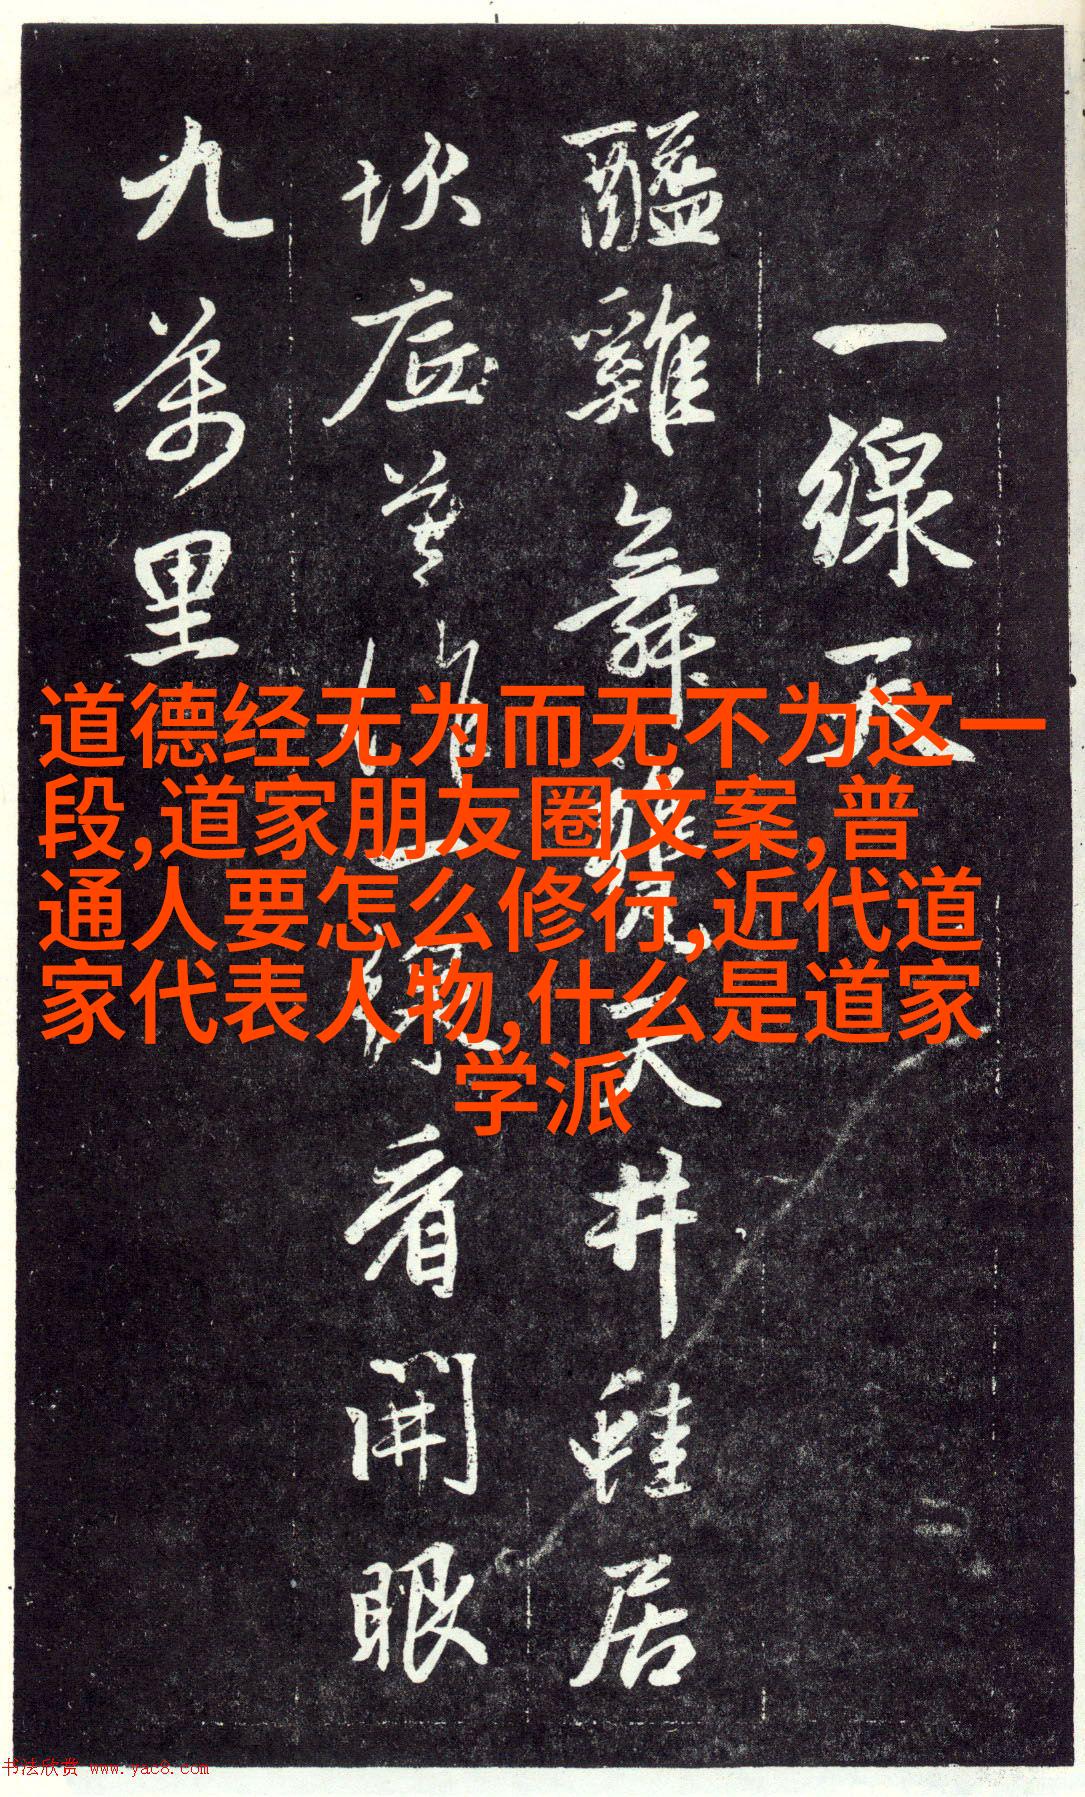 一線天
醯雞舞甕天井蛙居
坎底莫
看開眼
九萬里
道德经无为而无不为这一
段,道家朋友圈文案,普
通人要怎么修行,近代道
家代表人物,什么是道家
学派
书法欣赏 www.yac8.com